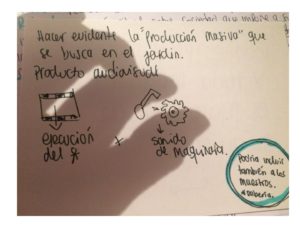 Hacer evidente la "Producción Masiva" que
se busca en el jardín.
Producto audiovisual
ejecución
del
+
sonido
de maquinaria.
Podría incluir
también a los
maestros.